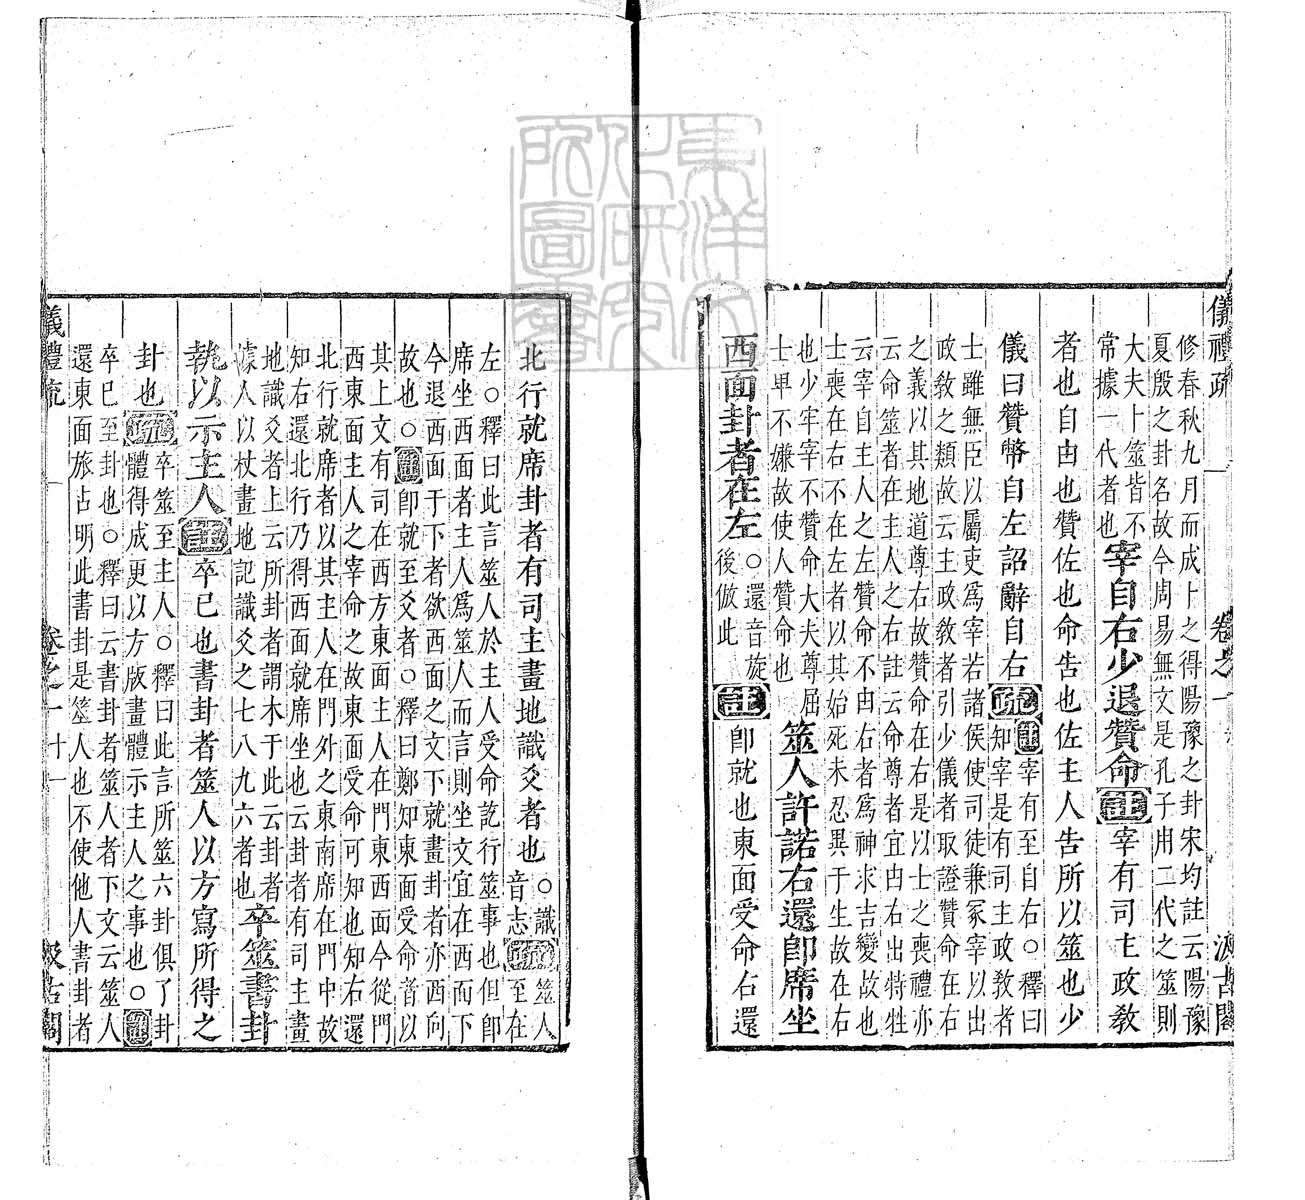 儀禮疏 卷之一 汲古閣
修春秋九月而成卜之得陽豫之卦宋均註云陽豫
夏殷之卦名故今周易無文是孔子用二代之筮則
大夫卜筮皆不
常據一代者也
宰自右少退贊命註宰有司主政教
者也自由也贊佐也命告也佐主人告所以筮也少
儀曰贊幣自左詔辭自右疏
註宰有至自右○釋曰
知宰是有司主政教者
士雖無臣以屬吏爲宰若諸侯使司徒兼冢宰以出
政教之類故云主政教者引少儀者取證贊命在右
之義以其地道尊右故贊命在右是以士之喪禮亦
云命筮者在主人之右註云命尊者宜由右出特牲
云宰自主人之左贊命不由右者爲神求吉變故也
士喪在右不在左者以其始死未忍異于生故在右
也少牢宰不贊命大夫尊屈
士卑不嫌故使人贊命也
筮人許諾右還即席坐
西面卦者在左
○還音旋
後倣此
註即就也東面受命右還
北行就席卦者有司主畫地識爻者也
○識
音志
疏
筮人
至在
左○釋曰此言筮人於主人受命訖行筮事也但即
席坐西面者主人爲筮人而言則坐文宜在西面下
今退西面于下者欲西面之文下就畫卦者亦西向
故也○註即就至爻者○釋曰鄭知東面受命者以
其上文有司在西方東面主人在門東西面今從門
西東面主人之宰命之故東面受命可知也知右還
北行就席者以其主人在門外之東南席在門中故
知右還北行乃得西面就席坐也云卦者有司主畫
地識爻者上云所卦者謂木于此云卦者
據人以杖畫地記識爻之七八九六者也
卒筮書卦
執以示主人註卒已也書卦者筮人以方寫所得之
卦也疏
卒筮至主人○釋曰此言所筮六卦俱了卦
體得成更以方版畫體示主人之事也○註
卒已至卦也○釋曰云書卦者筮人者下文云筮人
還東面旅占明此書卦是筮人也不使他人書卦者
儀禮疏 卷之一 十一 汲古閣